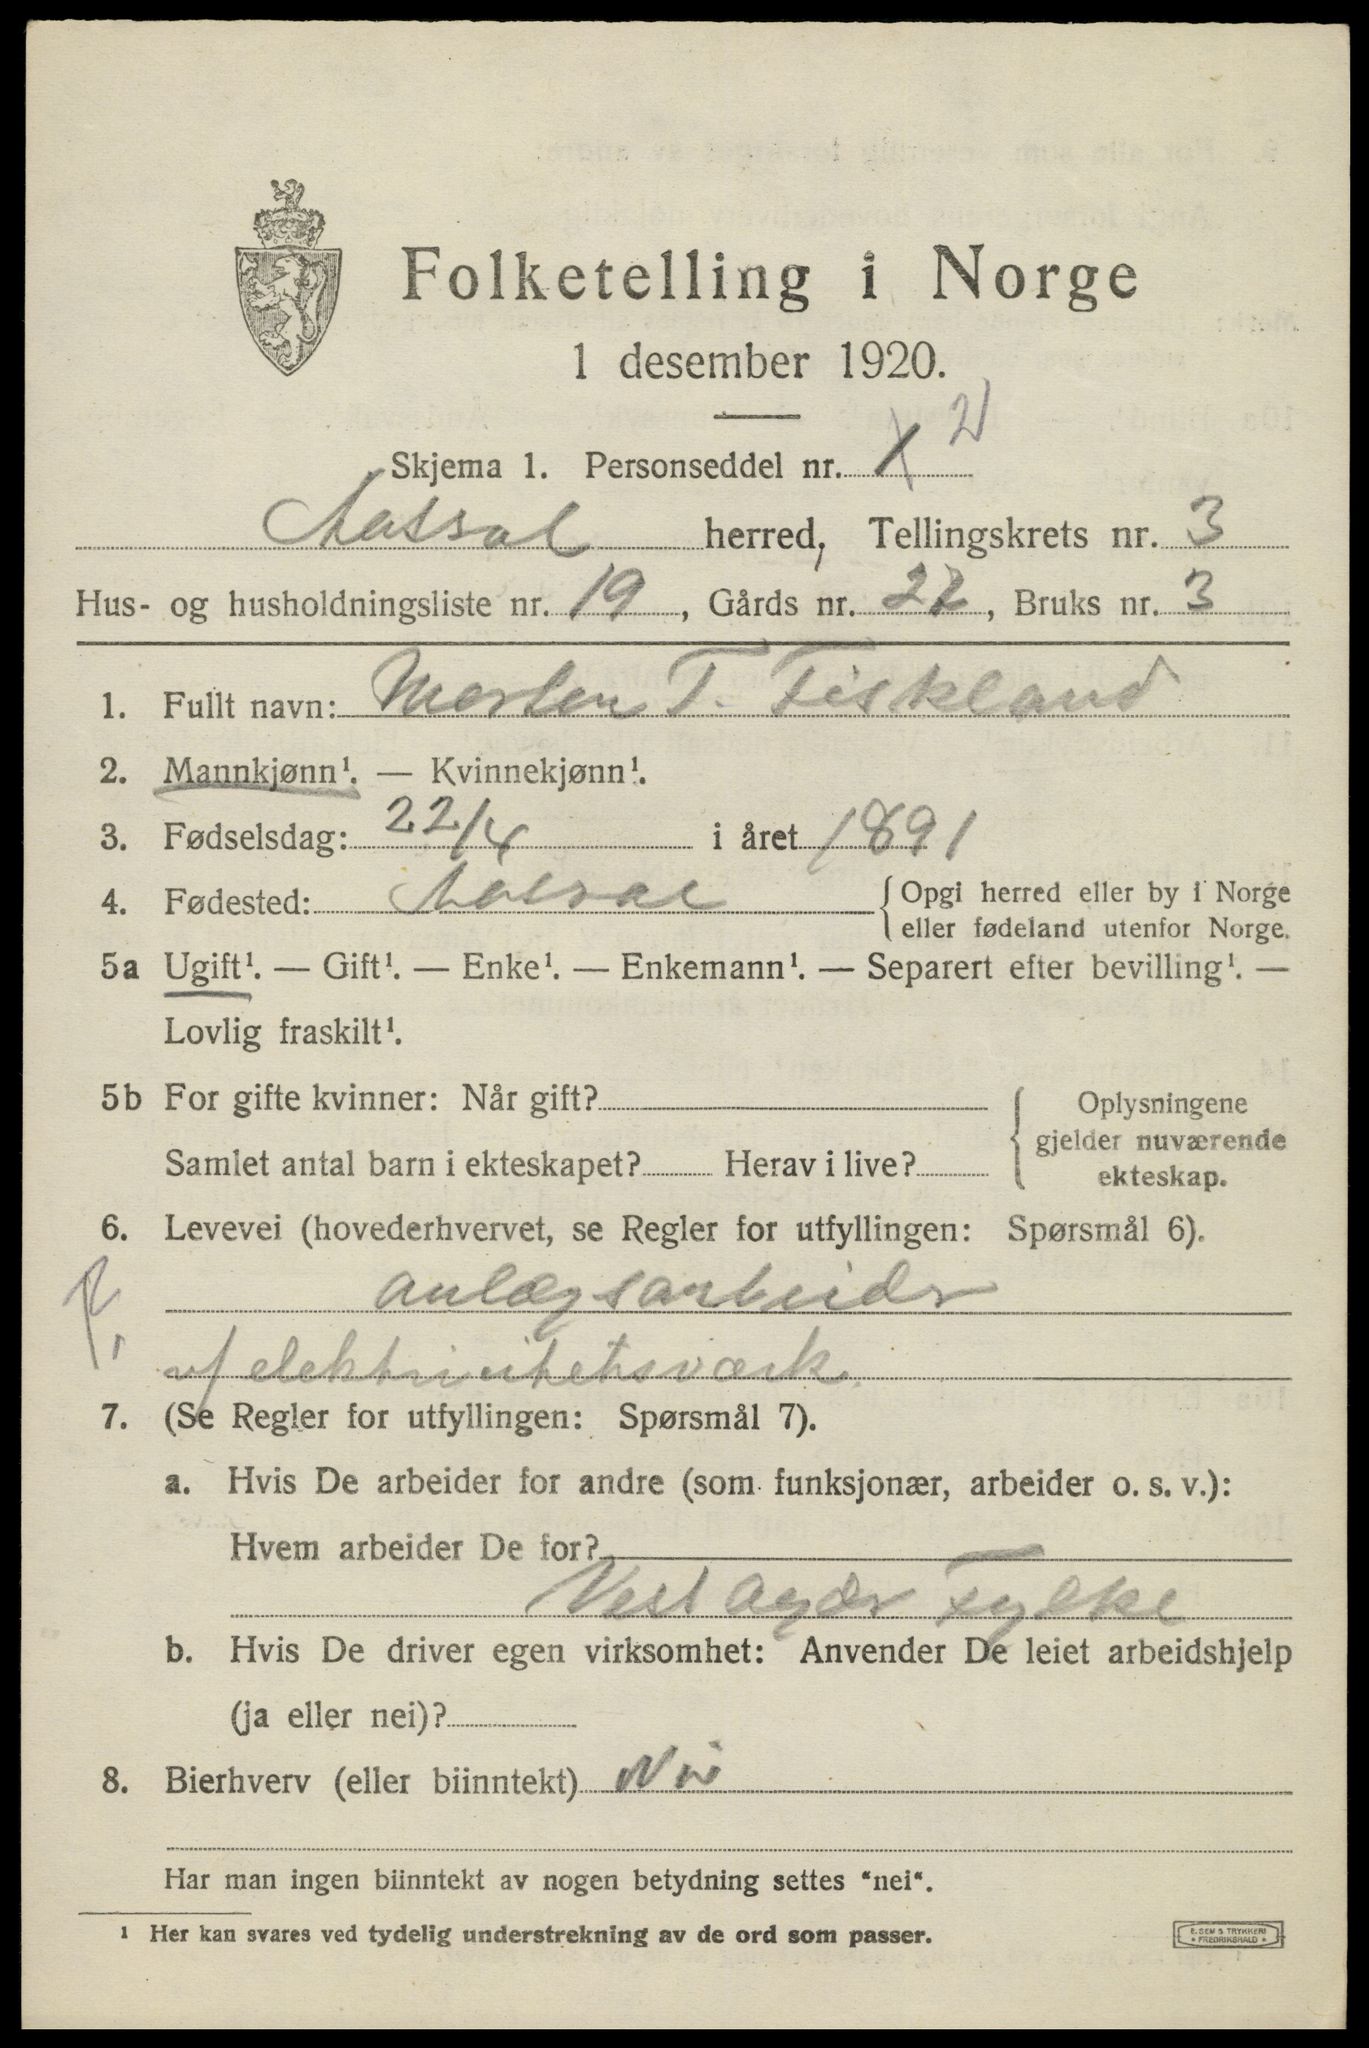 Folketelling i Norge
1 desember 1920.
Skjema 1. Personseddel nr. 1 2
Aaseral herred, Tellingskrets nr. 3
Hus- og husholdningsliste nr. 19, Gårds nr. 22, Bruks nr. 3
1. Fullt navn: Morten T. Fiskland
2. Mannkjønn¹. — Kvinnekjønn¹.
3. Fødselsdag: 22/4 i året 1891
4. Fødested: Aaseral {Opgi herred eller by i Norge
eller fødeland utenfor Norge.
5a Ugift¹. — Gift¹. — Enke¹. — Enkemann¹. — Separert efter bevilling¹. —
Lovlig fraskilt¹.
5b For gifte kvinner: Når gift?
Samlet antal barn i ekteskapet? Herav i live?
{Oplysningene
gjelder nuværende
ekteskap.
6. Levevei (hovederhvervet, se Regler for utfyllingen: Spørsmål 6).
anlægsarbeider
v/ elektricitetsværk.
7. (Se Regler for utfyllingen: Spørsmål 7).
a. Hvis De arbeider for andre (som funksjonær, arbeider o. s. v.):
Hvem arbeider De for?
Vest Agder Fylke
b. Hvis De driver egen virksomhet: Anvender De leiet arbeidshjelp
(ja eller nei)?
8. Bierhverv (eller biinntekt) Nei
Har man ingen biinntekt av nogen betydning settes "nei".
¹ Her kan svares ved tydelig understrekning av de ord som passer.
E. SEM'S TRYKKERI
FREDRIKSHALD